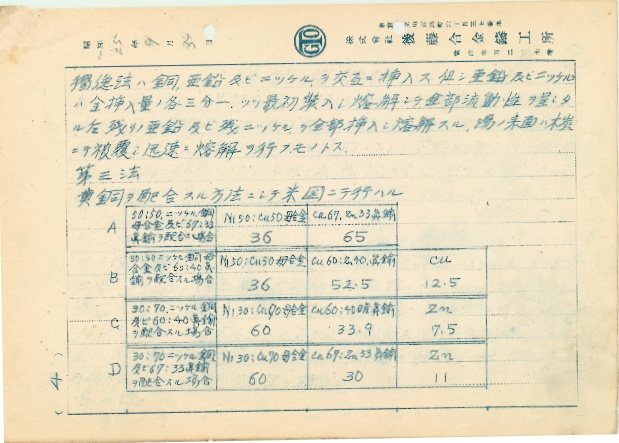 株式会社 後藤合金鋳工所
昭和 25年 9月 30日
獨逸法ハ銅、亜鉛及ビニッケルヲ交互ニ挿入ス但シ亜鉛及ビニッケル
ハ全挿入量ノ各三分一ヅツ最初装入シ熔解シテ全部流動性ヲ呈シタ
ル后残リノ亜鉛及ビ残ニッケルヲ全部挿入シ熔解スル、湯ノ表面ハ木炭
ニテ被覆シ迅速ニ熔解ヲ行フモノトス
第三法
黄銅ヲ配合スル方法ニシテ米国ニテ行ハル
A 50:50.ニッケル銅母合金及ビ67:33真鍮ヲ配合ノ場合 Ni50:Cu50母合金 Cu67.Zn33真鍮
36 65
B 50:50ニッケル銅母合金及ビ60:40真鍮ヲ配合スル場合 Ni50:Cu50母合金 Cu60:Zn40.真鍮 Cu
36 52.5 12.5
C 30:70.ニッケル銅及ビ60:40真鍮ヲ配合スル場合 Ni30:Cu70母合金 Cu60:40真鍮 Zn
60 33.9 7.5
D 30:70ニッケル銅及ビ67:33真鍮ヲ配合スル場合 Ni30:Cu70母合金 Cu67:Zn33真鍮 Zn
60 30 11
(4)